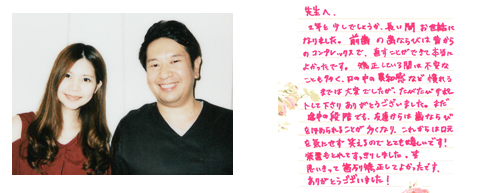 先生へ、
2年と少しでしょうか、長い間お世話に
なりました。前歯の歯ならびは昔から
のコンプレックスで、直すことができて本当に
よかったです。矯正している間は不安な
ことも多く、口の中の異和感など慣れる
までは大変でしたが、たびたび
して下さりありがとうございました。まだ
途中の段階でも、友達からは歯ならび
を ほめられることが多くなり、これからは口元
を気にせず笑えるのでとても嬉しいです!
もとれてすっきりしました。
思いきって歯列矯正してよかったです。
ありがとうございました!